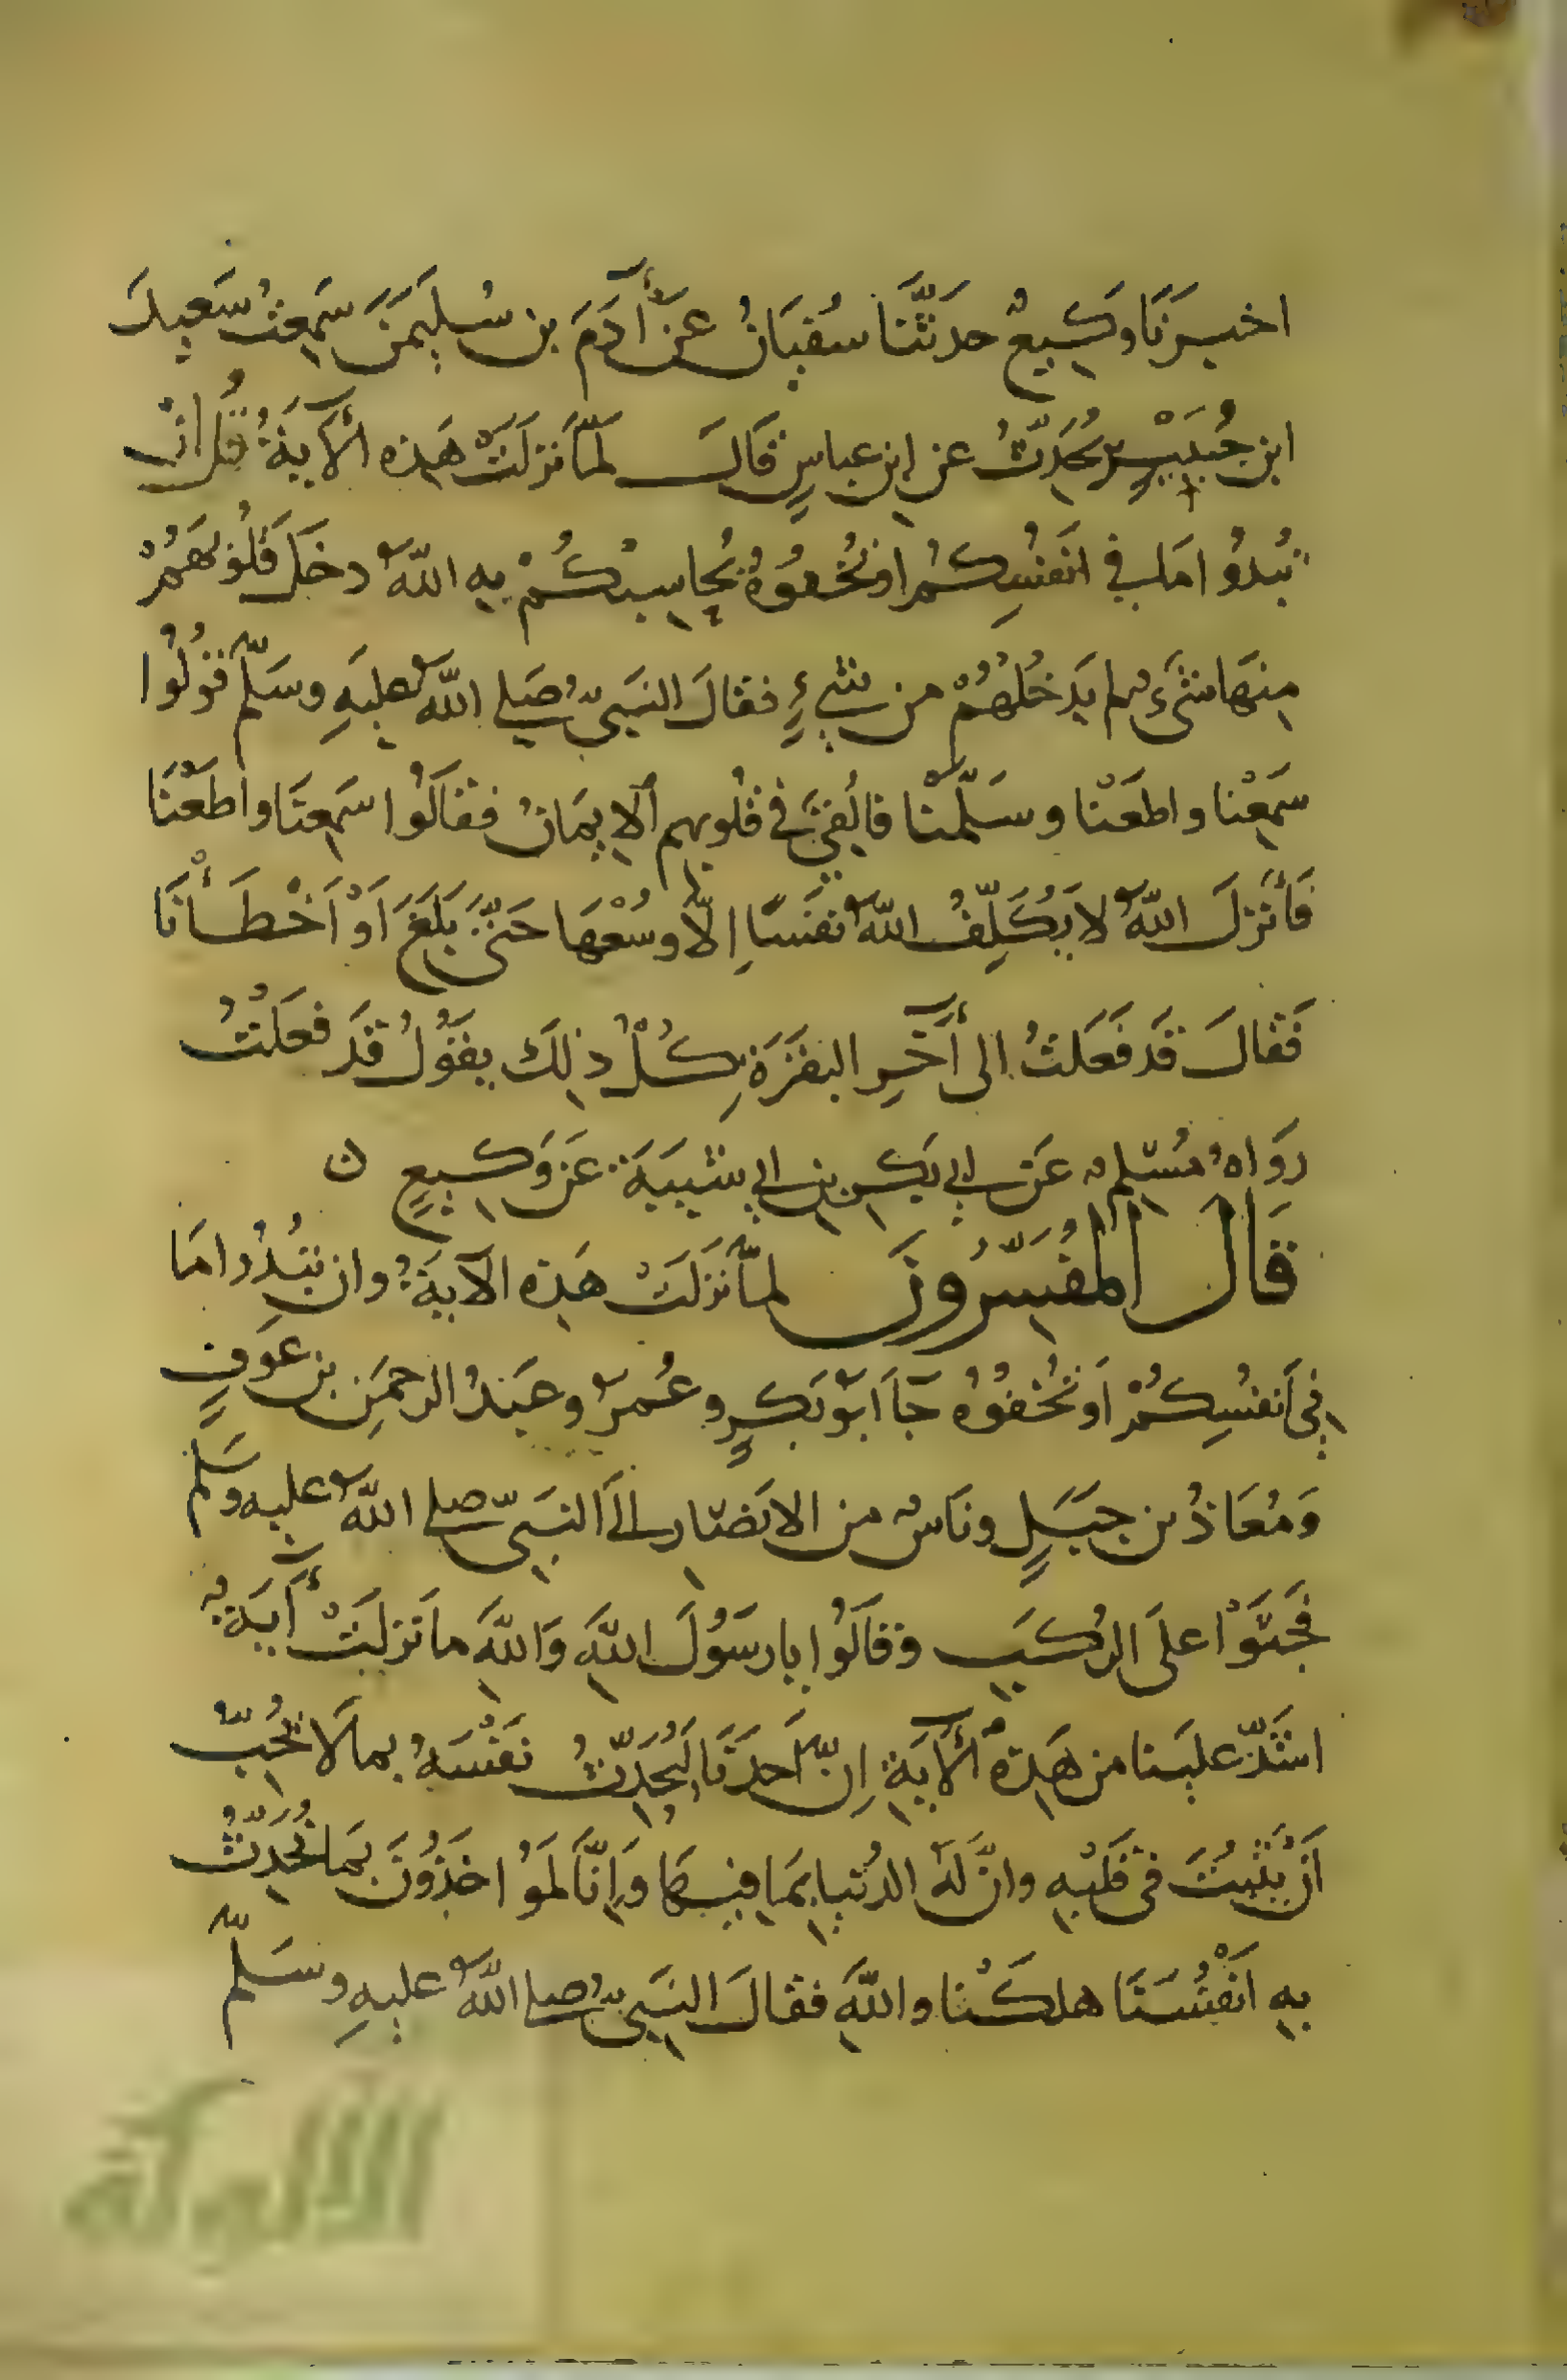 اخبرَنَا وَكيعٌ حدثَّنَا سُفيَانُ عَنْ آدَمَ بن سُليمَنَ سَمِعتُ سَعيدَ
ابن جُبَيْرٍ يُحَدِّثُ عن ابن عباسٍ قَالَ لَمَّا نزلَتْ هَذِه الآيَةُ قُل انْ
تُبدُوا مَا في انفُسِكُم اوتُخفُوهُ يُحاسِبْكُمْ بِهِ اللّهُ دخلَ قُلُوبَهُمْ
مِنهَا شَىءٌ لم يَدخُلْهُمْ من شيءٍ فقالَ النَبيُّ صَلى اللّهُ عليهِ وسَلّم قُولُوا
سَمِعْنا واطَعْنا وسَلَّمْنا فالُقِيَ في قُلوبهم الايمَانُ فقالُوا سَمِعنَا واطَعْنَا
فَأنزلَ اللّهُ لا يُكَلِّفُ اللّهُ نفسًا اِلَّا وسْعُهَا حَتّى بَلَغَ اَوْ اَخْطَأنَا
فَقالَ قَد فَعَلتُ الى آخِرِ البقَرَةِ كُلُّ ذلِكَ يقُولُ قَد فعَلْتُ
رَوَاهُ مُسْلِم عَن ابي بكرِ بن ابي شيبَةَ عَن وَكيعٍ ن
قَالَ المُفَسِّرُونَ لمّا نزَلَتْ هَذِه الآيَةُ وان تبُدُوا مَا
فِي اَنفُسِكُمْ اَو تُخفُوُهُ جَآ اَبُو بَكرٍ وعُمرُ وعَبدُ الرحمَنِ بن عَوفٍ
وَمُعَاذُ بن جبَلٍ ونَاسٌ من الانصَارِ اِلَى النَبيِّ صلى اللّهُ عليه وسَلم
فجَثَوْا علَى الرُكَبِ وقالُوا يا رسُولَ اللّهِ وَاللّهِ ما نزلَتْ آيَةٌ
اشَدّ علَينا من هَذِهِ الآيَةِ اِنّ اَحدَنَا لَيُحَدِّثُ نفْسَهُ بما لَا يُحِبّ
اَنْ يَثبُتَ في قَلْبِهِ وانَّ لهُ الدُنيا بِمَا فيهَا وَاِنَّا لَمُواخَذُونَ بمَا نُحَدِّثُ
بِهِ اَنفُسَنَا هلكْنا واللّهِ فقالَ النَبيُّ صلى اللّهُ عليهِ وسَلّم
الألوكة